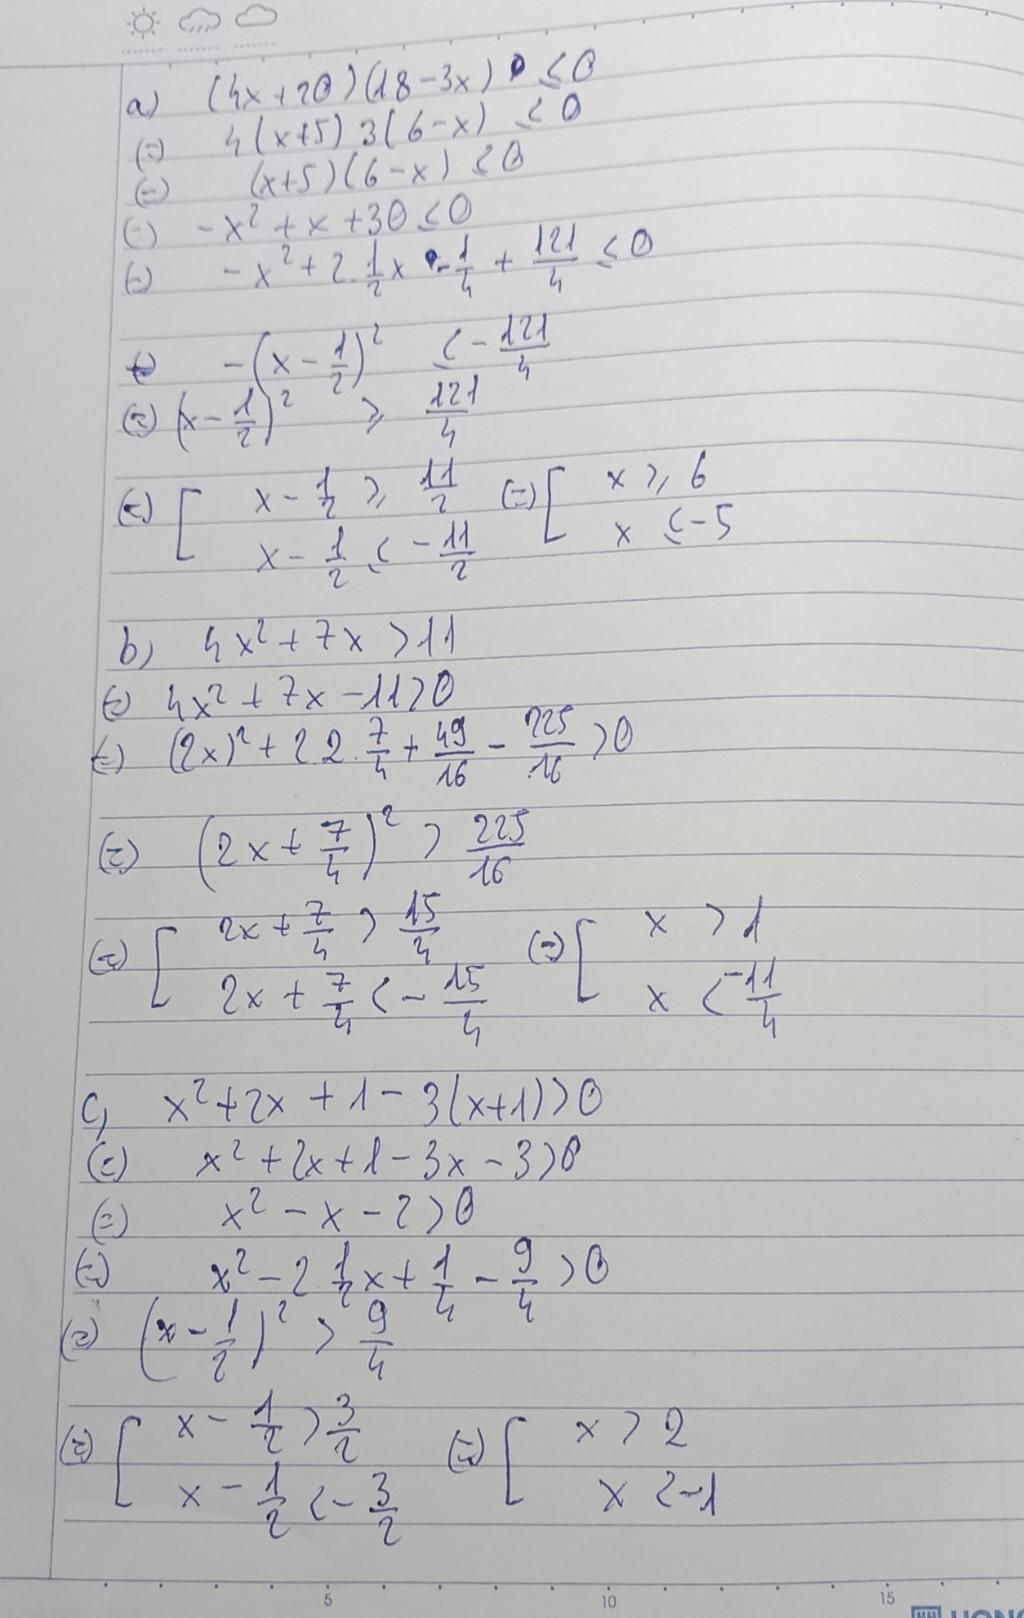 a) (4x+20)(18-3x) ≤0
(=) 4(x+5) 3(6-x) ≤0
(=) (x+5)(6-x) ≤0
(=) -x² + x +30 ≤0
(=) -x² + 2.1/2x - 1/4 + 121/4 ≤0
(=) -(x - 1/2)² ≤ -121/4
(=) (x - 1/2)² ≥ 121/4
(=) [ x - 1/2 ≥ 11/2 (=) [ x ≥ 6
x - 1/2 ≤ -11/2 x ≤ -5
b) 4x² + 7x >11
(=) 4x² + 7x -11>0
(=) (2x)² + 2.2.7/4 + 49/16 - 225/16 >0
(=) (2x + 7/4)² > 225/16
(=) [ 2x + 7/4 > 15/4 (=) [ x > 1
2x + 7/4 < -15/4 x < -11/4
c, x²+2x +1 - 3(x+1)>0
(=) x² + 2x+1 - 3x - 3>0
(=) x² - x - 2>0
(=) x² - 2 1/2x + 1/4 - 9/4 >0
(=) (x - 1/2)² > 9/4
(=) [ x - 1/2 > 3/2 (=) [ x > 2
x - 1/2 < -3/2 x < -1
5 10 15